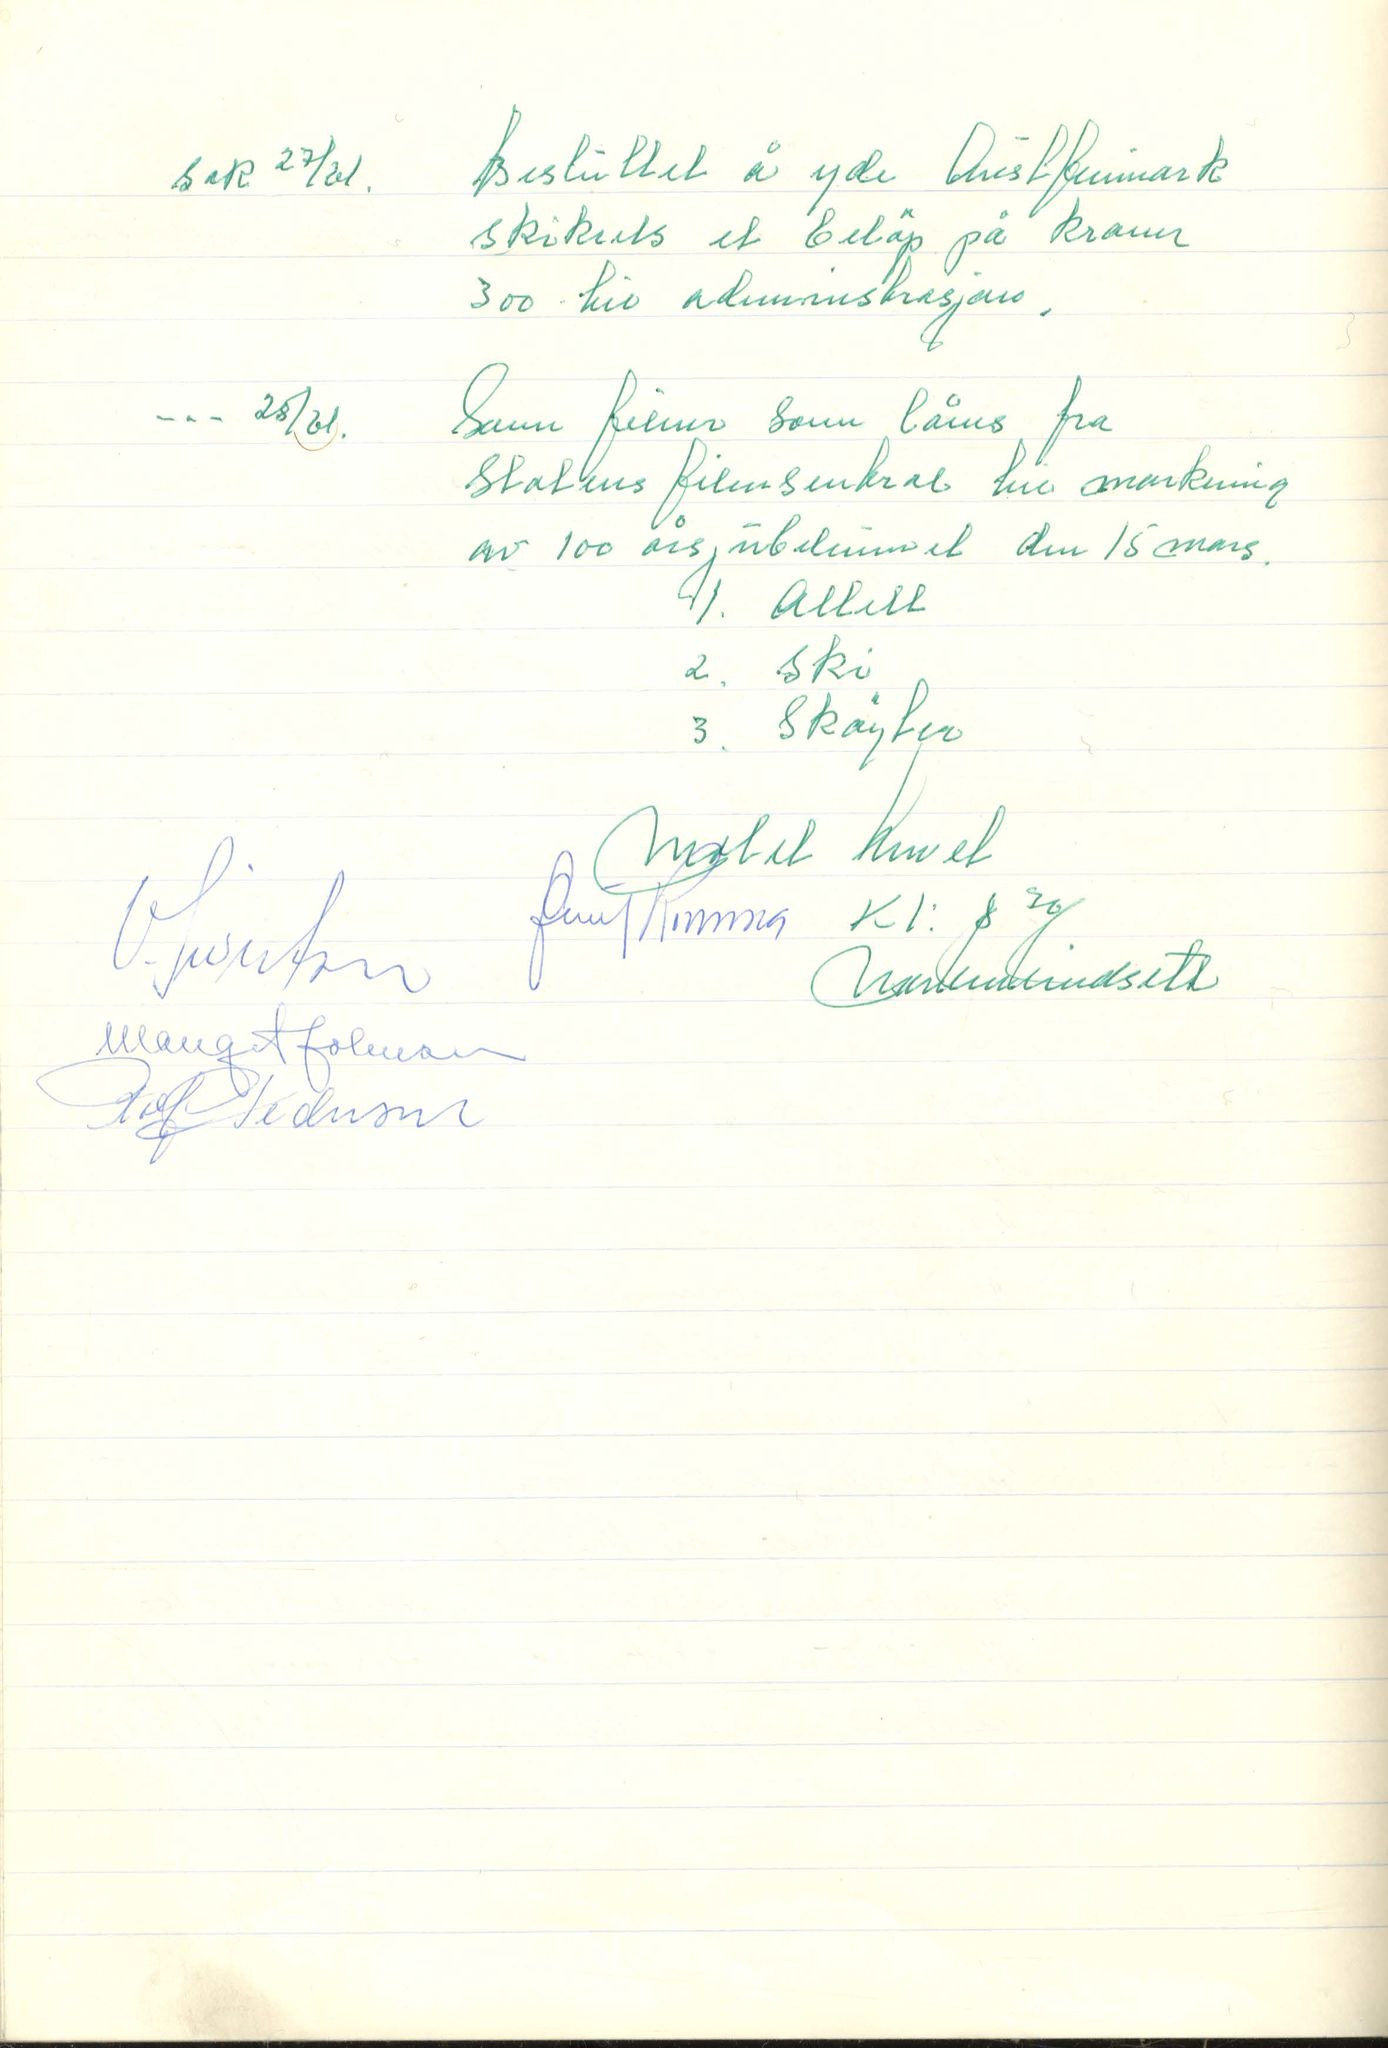 Sak 27/61. Besluttet å yde Austfinnmark
skikrets et beløp på kroner
300 til administrasjon.
--- 28/61. Som filmer som lånes fra
Statens filmsentral til markering
av 100 årsjubileumet den 15 mars.
1. Allell
2. Ski
3. Skøyter
Møtet hevet
Kl: 8 30
Margit Johnsen
Rolf Pedersen